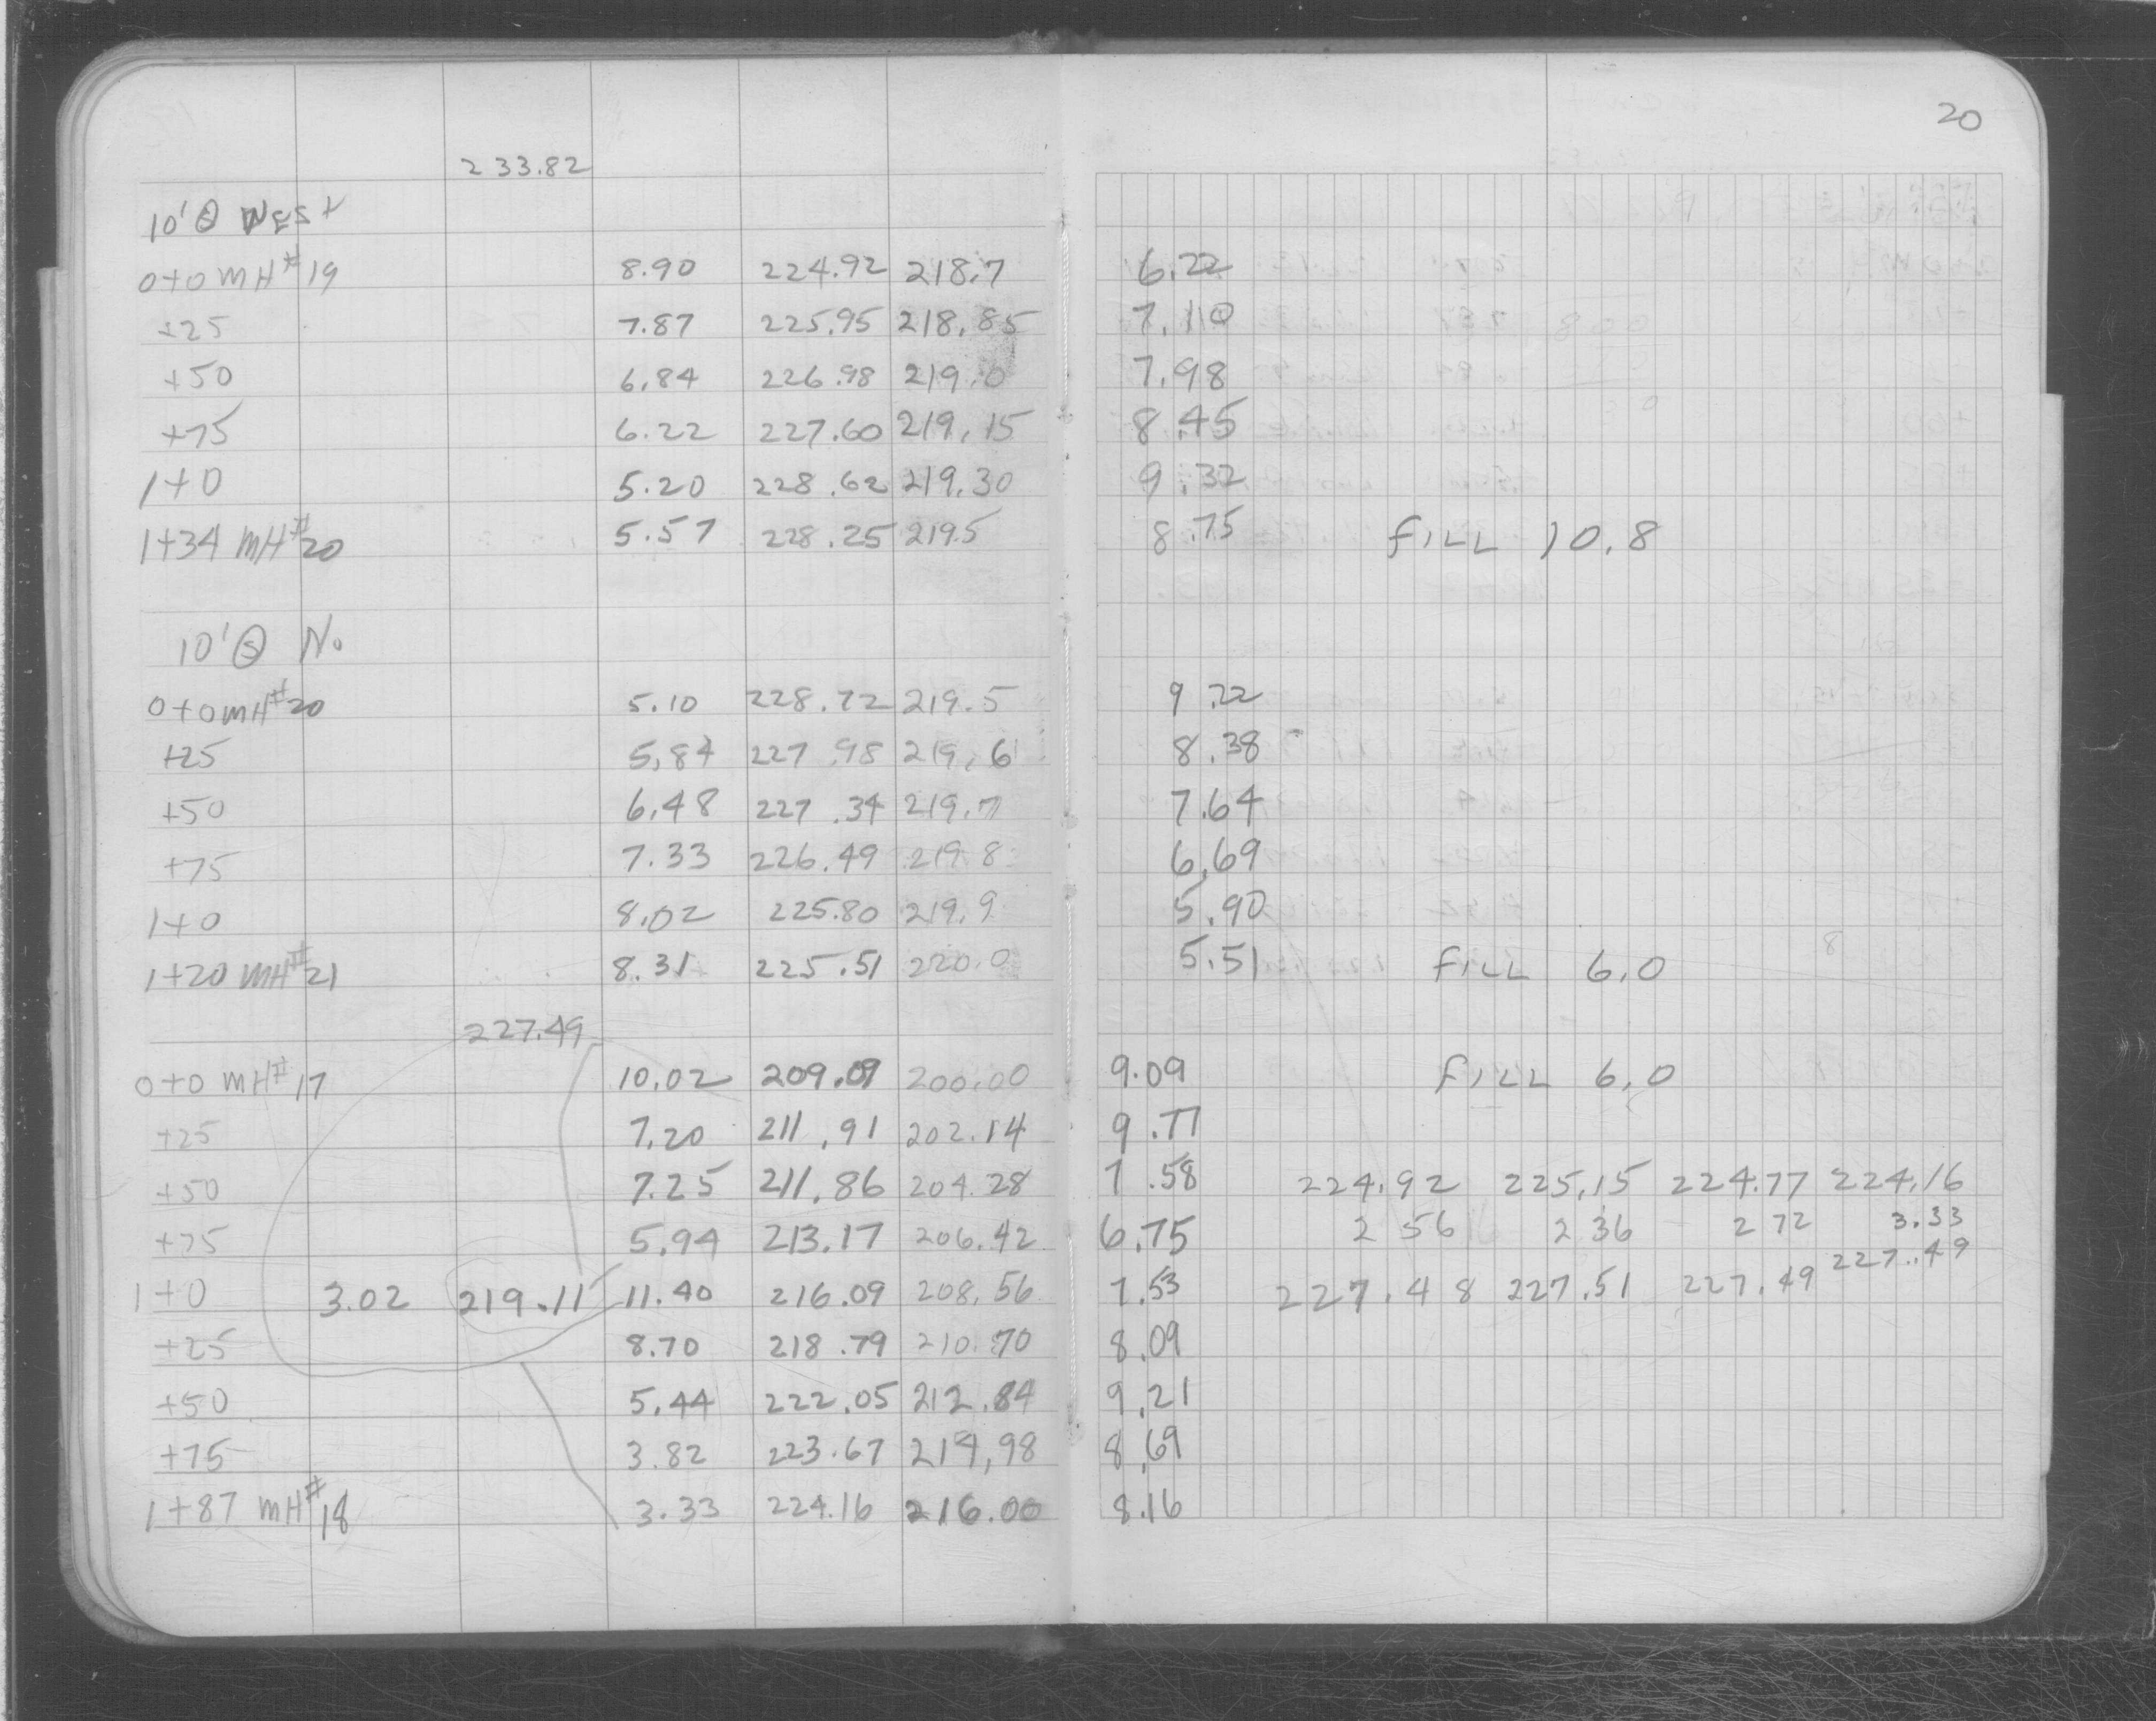 20
233.82
10' Q WEST
0+0 MH#19 8.90 224.92 218.7 6.22
+25 7.87 225.95 218.85 7.10
+50 6.84 226.98 219.0 7.98
+75 6.22 227.60 219.15 8.45
1+0 5.20 228.62 219.30 9.32
1+34 MH#20 5.57 228.25 219.5 8.75 FILL 10.8
10' Q No.
0+0 MH#20 5.10 228.72 219.5 9.22
+25 5.84 227.98 219.6 8.38
+50 6.48 227.34 219.7 7.64
+75 7.33 226.49 219.8 6.69
1+0 8.02 225.80 219.9 5.90
1+20 MH#21 8.31 225.51 220.0 5.51 FILL 6.0
227.49
0+0 MH#17 10.02 209.09 200.00 9.09 FILL 6.0
+25 7.20 211.91 202.14 9.77
+50 7.25 211.86 204.28 7.58 224.92 225.15 224.77 224.16
+75 5.94 213.17 206.42 6.75 2 56 2 36 2 72 3.33
1+0 3.02 219.11 11.40 216.09 208.56 7.53 227.48 227.51 227.49 227.49
+25 8.70 218.79 210.70 8.09
+50 5.44 222.05 212.84 9.21
+75 3.82 223.67 214.98 8.69
1+87 MH#18 3.33 224.16 216.00 8.16